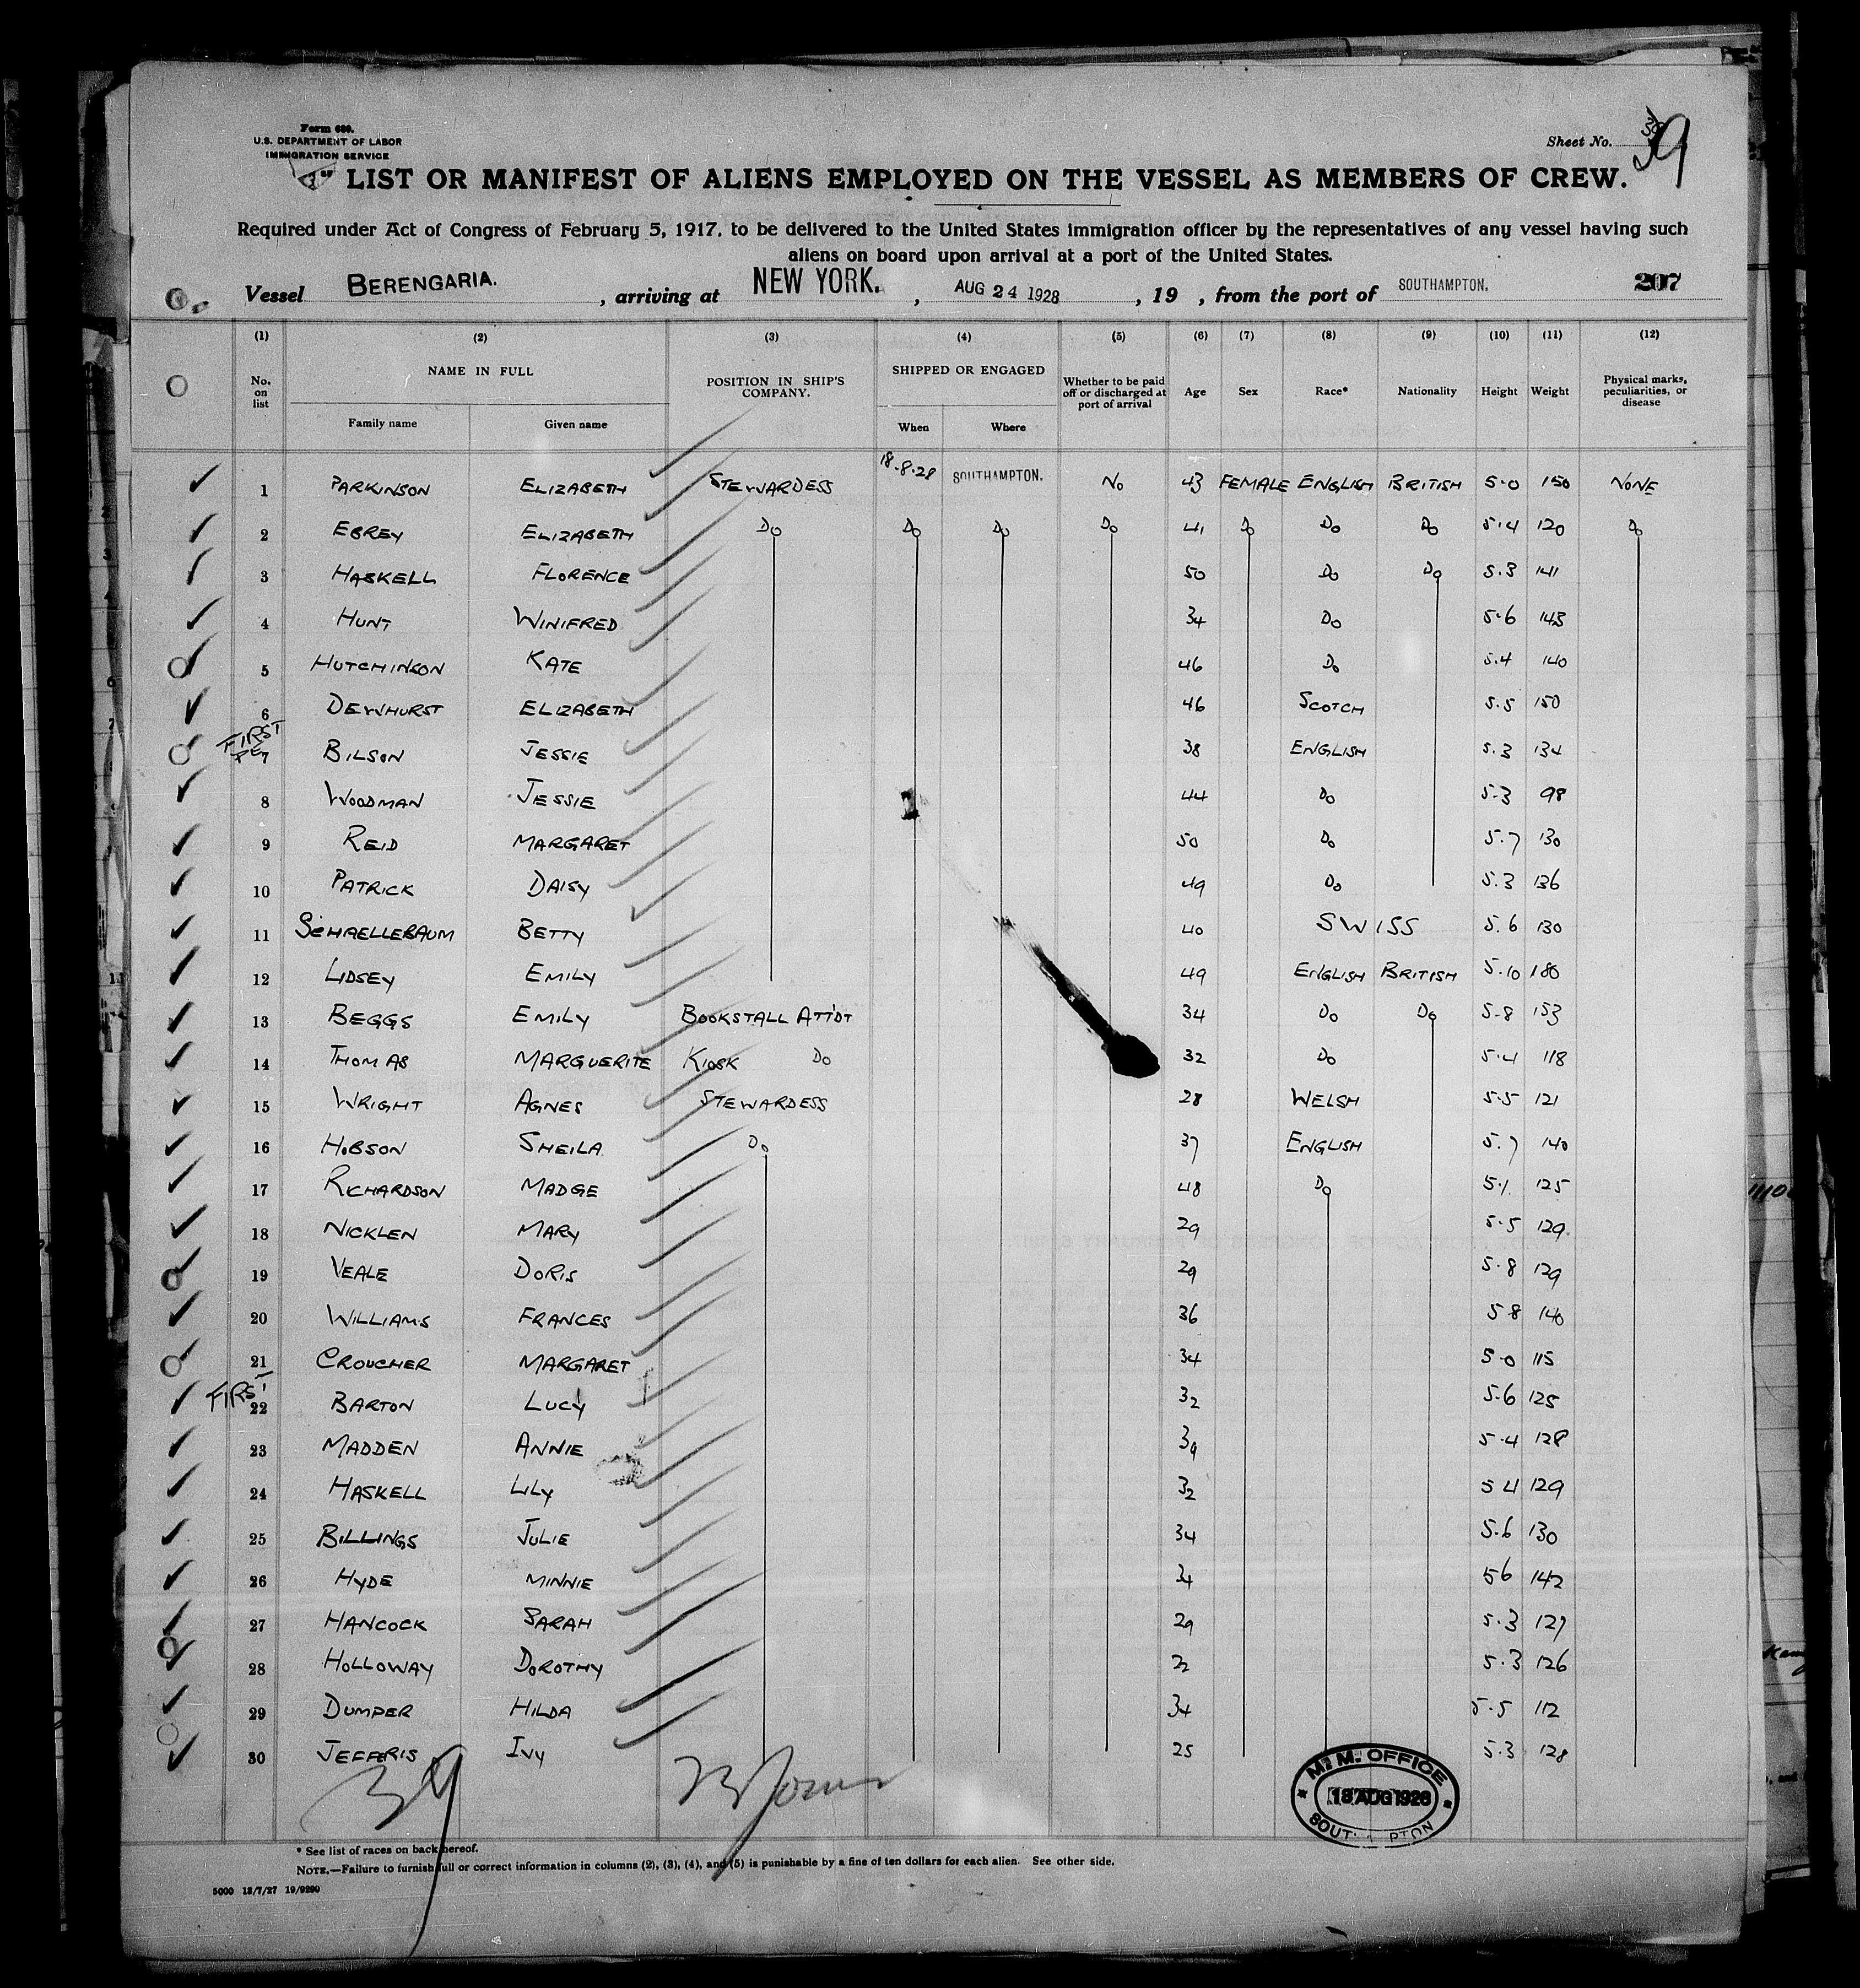 Form 680.
U.S. DEPARTMENT OF LABOR
IMMIGRATION SERVICE
Sheet No. 39
LIST OR MANIFEST OF ALIENS EMPLOYED ON THE VESSEL AS MEMBERS OF CREW.
Required under Act of Congress of February 5, 1917, to be delivered to the United States immigration officer by the representatives of any vessel having such
aliens on board upon arrival at a port of the United States.
Vessel BERENGARIA. , arriving at NEW YORK. , AUG 24 1928 , 19 , from the port of SOUTHAMPTON. 207
(1) (2) (3) (4) (5) (6) (7) (8) (9) (10) (11) (12)
No. on list NAME IN FULL Family name Given name POSITION IN SHIP'S COMPANY. SHIPPED OR ENGAGED When Where Whether to be paid off or discharged at port of arrival Age Sex Race* Nationality Height Weight Physical marks, peculiarities, or disease
1 PARKINSON ELIZABETH STEWARDESS 18.8.28 SOUTHAMPTON. NO 43 FEMALE ENGLISH BRITISH 5.0 150 NONE
2 EBREY ELIZABETH DO DO DO DO 41 DO DO DO 5.4 120 DO
3 HASKELL FLORENCE 50 DO DO 5.3 141
4 HUNT WINIFRED 34 DO 5.6 143
5 HUTCHINSON KATE 46 DO 5.4 140
6 DEWHURST ELIZABETH 46 SCOTCH 5.5 150
FIRST
7 BILSON JESSIE 38 ENGLISH 5.3 134
8 WOODMAN JESSIE 44 DO 5.3 98
9 REID MARGARET 50 DO 5.7 130
10 PATRICK DAISY 49 DO 5.3 136
11 SCHAELLEBAUM BETTY 40 SWISS 5.6 130
12 LIDSEY EMILY 49 ENGLISH BRITISH 5.10 180
13 BEGGS EMILY BOOKSTALL ATTDT 34 DO DO 5.8 153
14 THOMAS MARGUERITE KIOSK DO 32 DO 5.4 118
15 WRIGHT AGNES STEWARDESS 28 WELSH 5.5 121
16 HOBSON SHEILA DO 37 ENGLISH 5.7 140
17 RICHARDSON MADGE 48 DO 5.1. 125
18 NICKLEN MARY 29 5.5 129.
19 VEALE DORIS 29 5.8 129
20 WILLIAMS FRANCES 36 5 8 140
21 CROUCHER MARGARET 34 5.0 115
FIRST
22 BARTON LUCY 32 5.6 125
23 MADDEN ANNIE 39 5.4 128
24 HASKELL LILY 32 5 4 129
25 BILLINGS JULIE 34 5.6 130
26 HYDE MINNIE 34 5 6 142
27 HANCOCK SARAH 29 5.3 127
28 HOLLOWAY DOROTHY 5.3 126
29 DUMPER HILDA 34 5.5 112
30 JEFFERIS IVY 25 5.3 128
39
M. M. OFFICE
18 AUG 1928
* See list of races on back hereof.
NOTE.—Failure to furnish full or correct information in columns (2), (3), (4), and (5) is punishable by a fine of ten dollars for each alien. See other side.
5000 13/7/27 19/9290